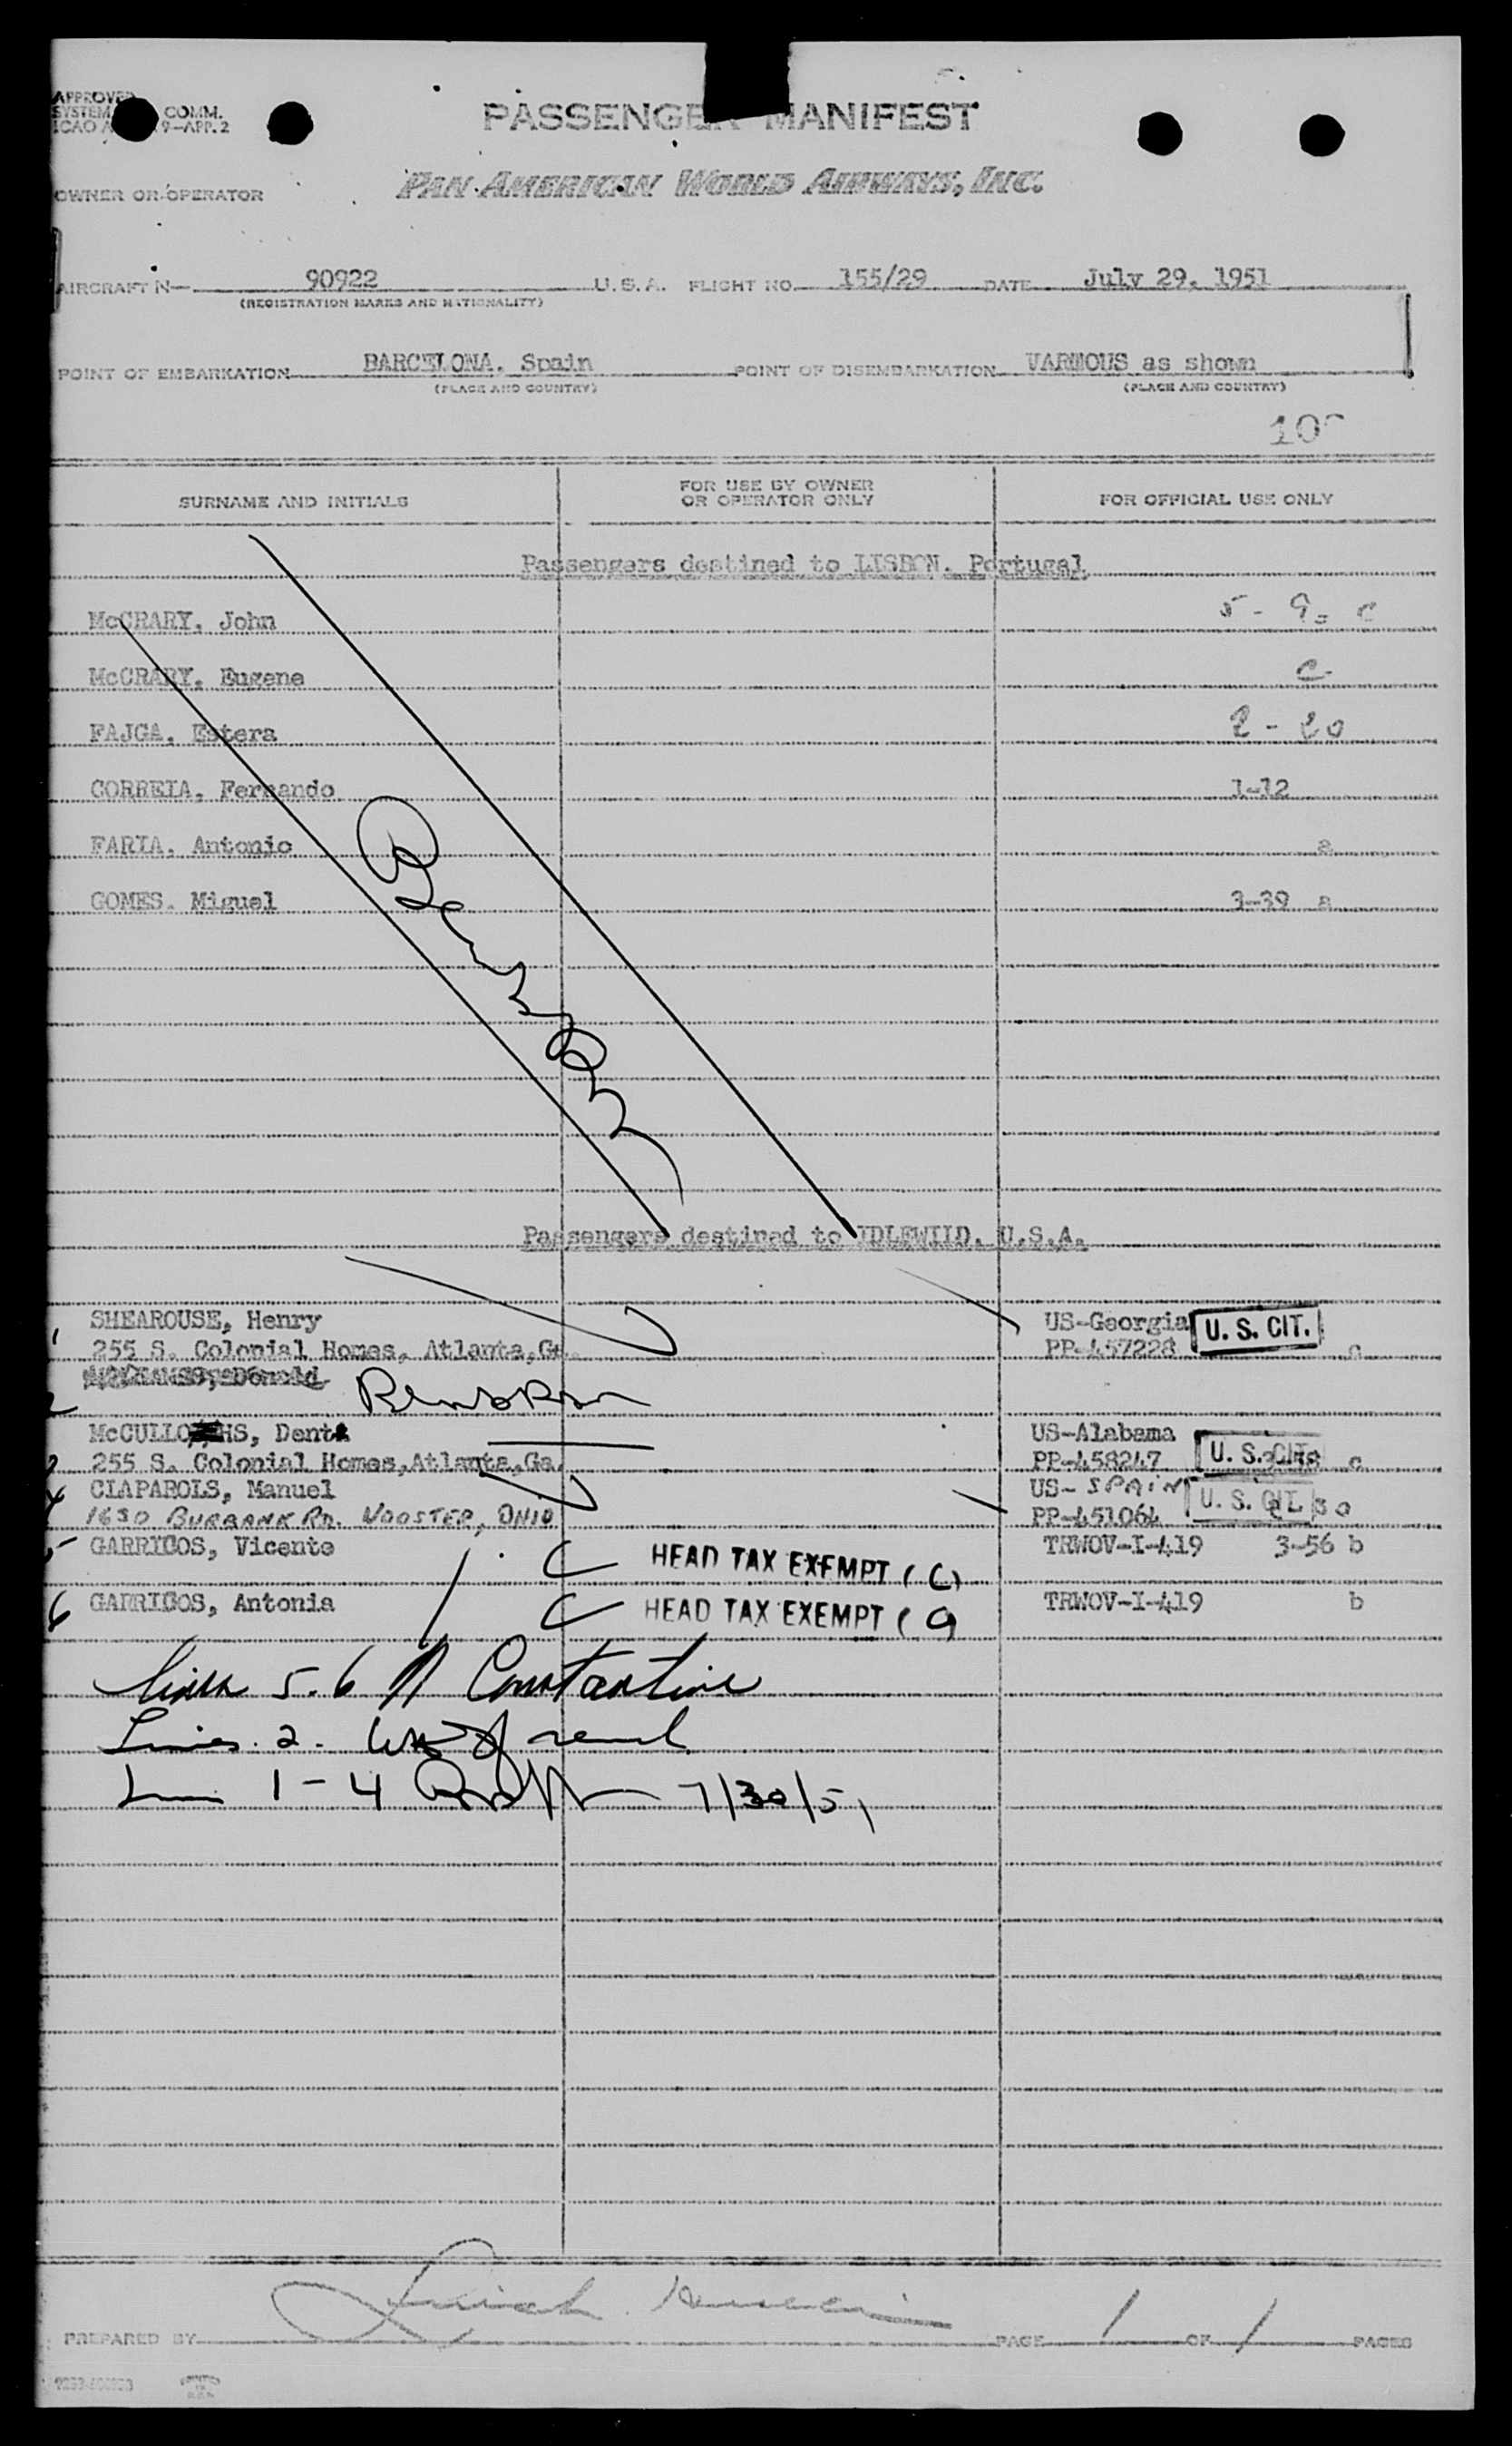 APPROVED
SYSTEM COMM.
ICAO A 9-APP. 2
PASSENGER MANIFEST
OWNER OR OPERATOR
PAN AMERICAN WORLD AIRWAYS, INC.
AIRCRAFT N- 90922 U.S.A. FLIGHT NO. 155/29 DATE July 29, 1951
(REGISTRATION MARKS AND NATIONALITY)
POINT OF EMBARKATION BARCELONA, Spain POINT OF DISEMBARKATION VARIOUS as shown
(PLACE AND COUNTRY) (PLACE AND COUNTRY)
SURNAME AND INITIALS
FOR USE BY OWNER
OR OPERATOR ONLY
FOR OFFICIAL USE ONLY
Passengers destined to LISBON, Portugal
McCRARY, John 5 - 9
McCRARY, Eugene c
FAJGA, Estera 2 - 20
CORREIA, Fernando 1-12
FARIA, Antonio a
GOMES, Miguel 3-39 a
Passengers destined to IDLEWILD, U.S.A.
SHEAROUSE, Henry US-Georgia U. S. CIT.
1 255 S. Colonial Homes, Atlanta, Ga. PP-457228 c
2
McCULLOHS, Denta US-Alabama
255 S. Colonial Homes, Atlanta, Ga. PP-458247 U. S. CIT. c
CLAPAROLS, Manuel US- SPAIN
4 1630 BURBANK RD. WOOSTER, OHIO PP-451064 U. S. CIT.
5 GARRIGOS, Vicente HEAD TAX EXEMPT (C) TRWOV-I-419 3-56 b
6 GARRIGOS, Antonia HEAD TAX EXEMPT ( TRWOV-I-419 b
Lines 5.6 Constantine
Lines 2.
1-4 7/30/51
PREPARED BY PAGE 1 OF 1 PAGES